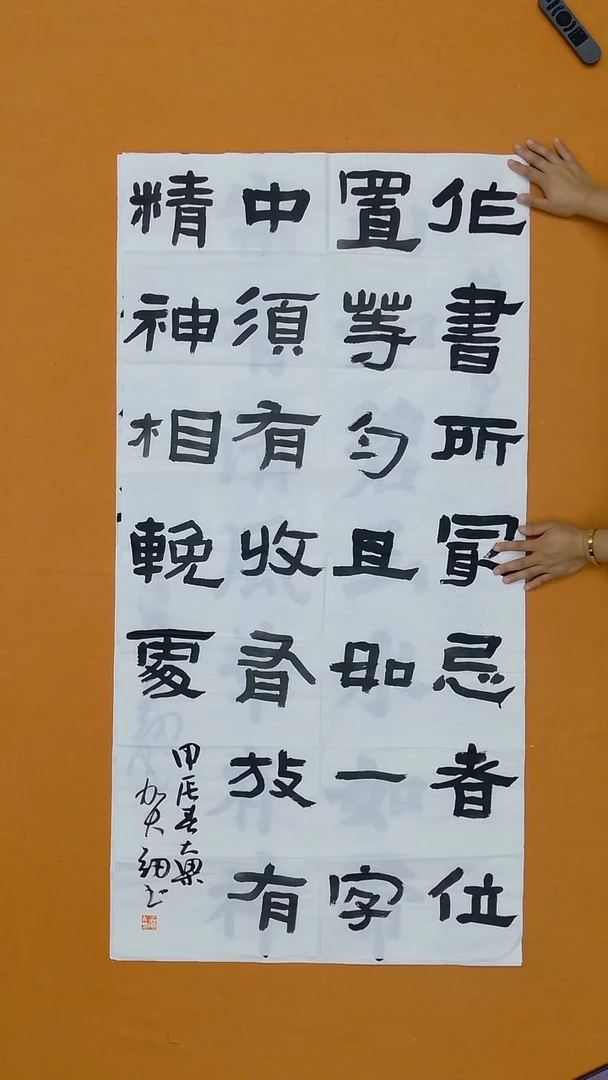 作書所最忌者位
置等勻且如一字
中須有收有放有
精神相輓處
甲辰春大梁